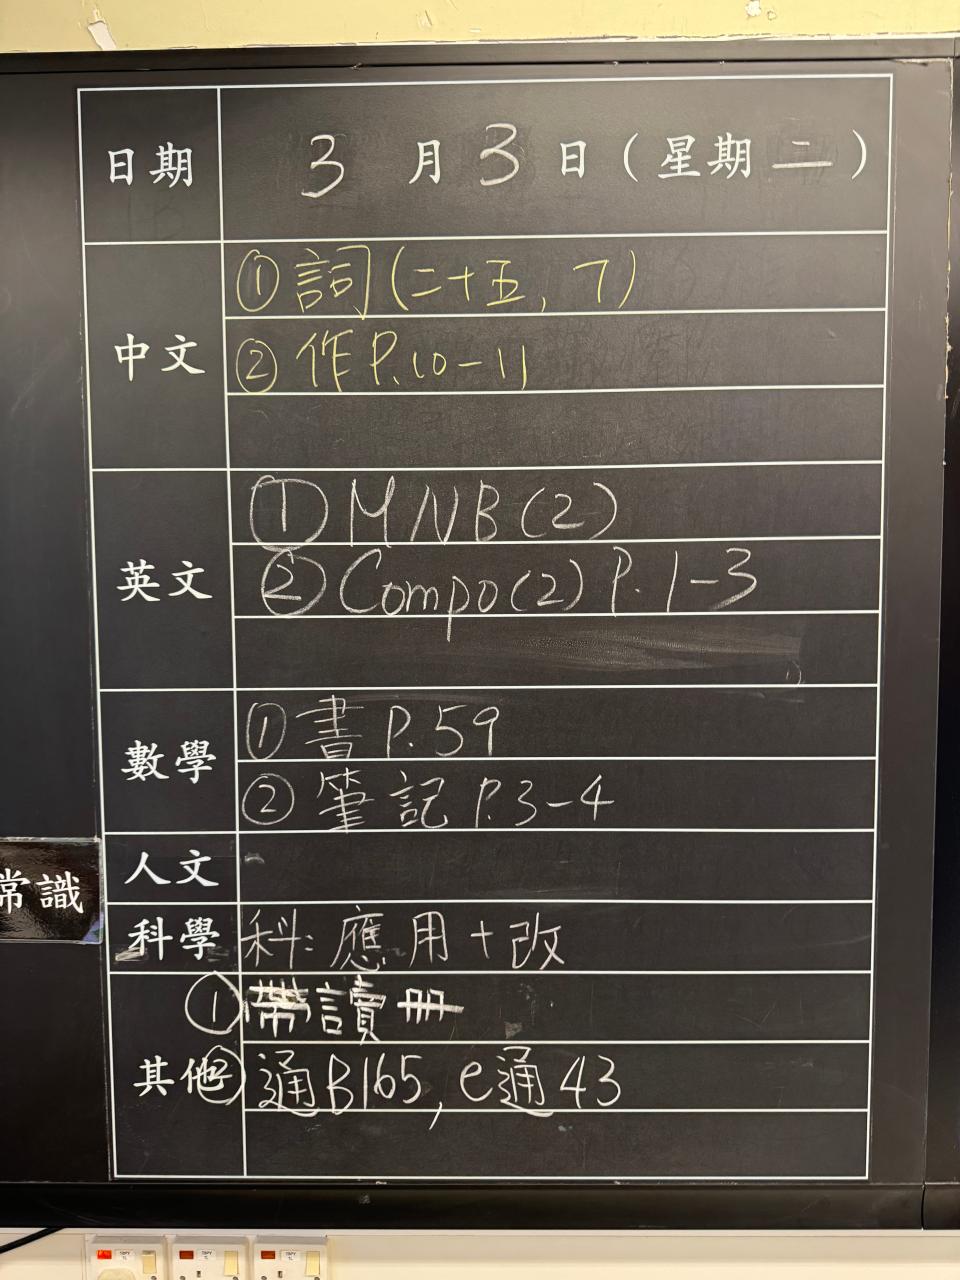 日期 3月3日(星期二)
中文
①詞(二十五,7)
②作P.10-11
英文
①MNB(2)
②Compo(2)P.1-3
數學
①書P.59
②筆記P.3-4
人文
常識
科學 科:應用+改
其他
①帶讀冊
②通B165,e通43